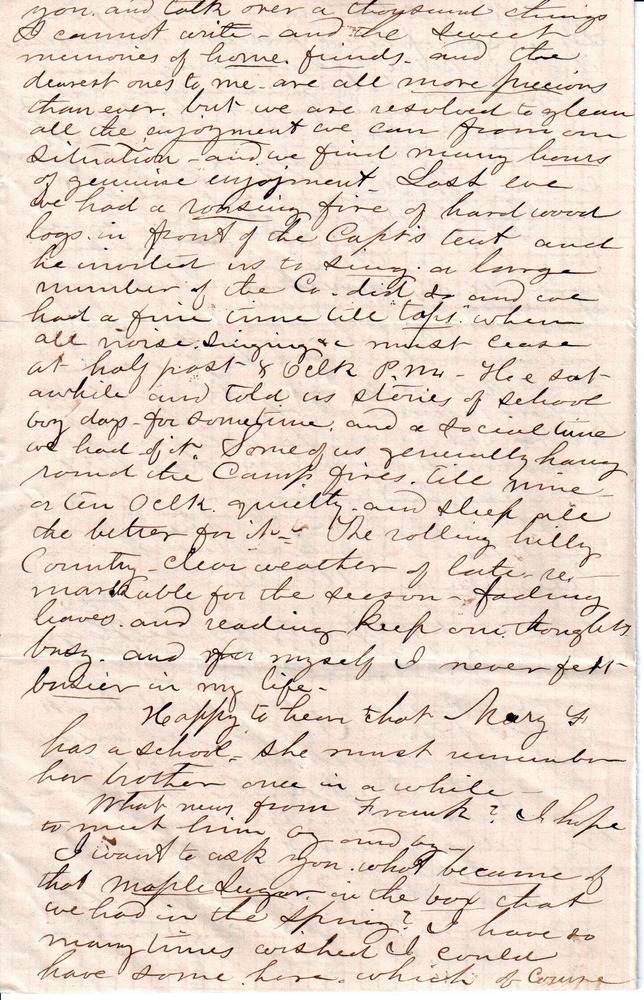 you. and talk over a thousand things
I cannot write - and the sweet
memories of home. friends. and the
dearest ones to me - are all more precious
than ever. but we are resolved to glean
all the enjoyment we can from our
situation - and we find many hours
of genuine enjoyment - Last eve
we had a rousing fire of hard wood
logs. in front of the Capt's tent and
he invited us to sing. a large
number of the Co - did so and we
had a fine time till "taps" when
all noise. singing &c must cease
at half past 8 Oclk P.M. - He sat
awhile and told us stories of school
boy days - for sometime. and a social time
we had of it. Some of us generally hang
round the Camp fires. till nine
or ten Oclk. quietly. and sleep all
the better for it - The rolling hilly
Country - clear weather of late - re-
markable for the season - fading
leaves. and reading keep our thoughts
busy. and for myself I never felt
busier in my life -
Happy to hear that Mary F
has a school - she must remember
her brother once in a while -
What news from Frank? I hope
to meet him by and by -
I want to ask you. what became of
that maple sugar. in the box that
we had in the Spring? I have so
many times wished I could
have some here. which of course